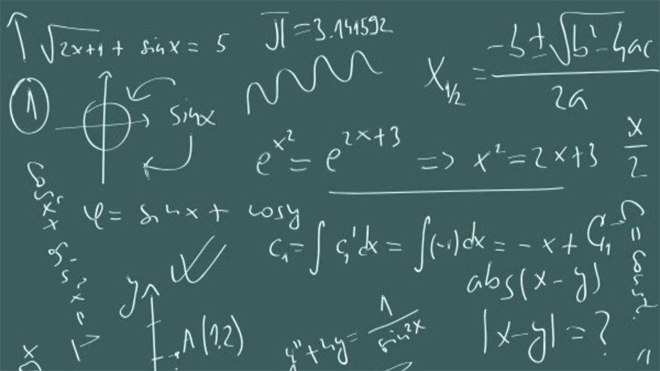 √2x+1 + sinx = 5
π = 3.141592
x₁/₂ = -b ± √b² - 4ac / 2a
1
sinx
e^x² = e^2x+3 => x² = 2x+3
x/2
φ = sinx + cosy
C₁ = ∫ C₁' dx = ∫(-1)dx = -x + C₁
abs(x-y)
y
A(1,2)
y" + 4y = 1/sin²x
|x-y| = ?